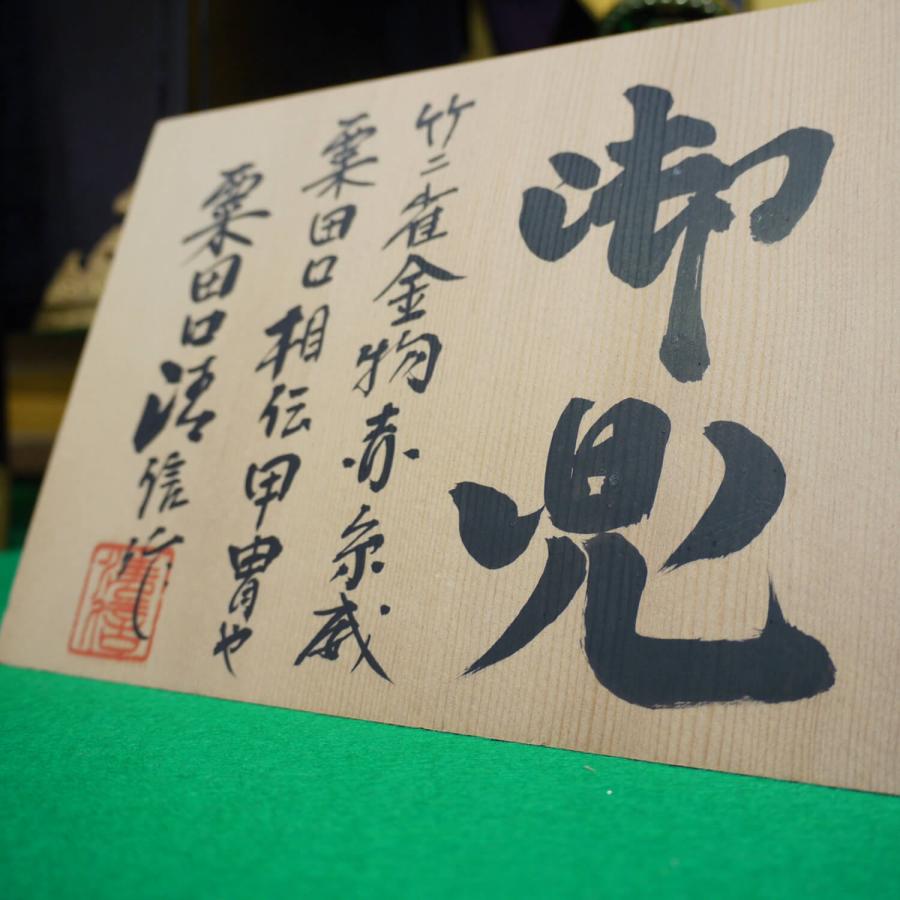 御兜
竹ニ雀金物赤糸威
粟田口相伝甲冑や
粟田口清信